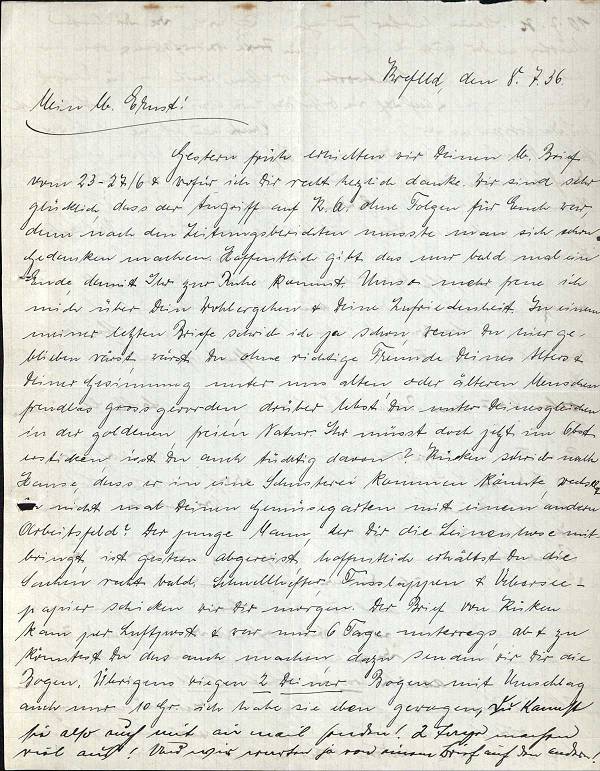 Krefeld, den 8. 7. 36.
Mein lb. Ernst!
Gestern früh erhielten wir Deinen lb. Brief
vom 23-27/6 & wofür ich Dir recht herzlich danke. Wir sind sehr
glücklich, dass der Angriff auf K. A. ohne Folgen für Euch war,
denn nach den Zeitungsberichten musste man sich schon
Gedanken machen. Hoffentlich gibt das nur bald mal ein
Ende damit Ihr zur Ruhe kommt. Umso mehr freue ich
mich über Dein Wohlergehen & Deine Zufriedenheit. In einem
meiner letzten Briefe schrieb ich ja schon, wenn Du hier ge-
blieben wärst, wärst Du ohne richtige Freunde Deines Alters &
Deiner Gesinnung unter uns alten oder älteren Menschen
freudlos gross geworden, drüben lebst Du unter Deinesgleichen
in der goldenen freien Natur. Ihr müsst doch jetzt im Obst
ersticken isst Du auch tüchtig davon? schrieb nach
Hause, dass er in eine Schusterei kommen könnte,
nicht mal Deinen Gemüsegarten mit einem andern
Arbeitsfeld? Der junge Mann, der Dir die Leinenhose mit-
bringt, ist gestern abgereist, hoffentlich erhältst Du die
Sachen recht bald. Schnellhefter, Fusslappen & Übersee-
papier schicken wir Dir morgen. Der Brief von
kam per Luftpost & war nur 6 Tage unterwegs, ab & zu
könntest Du das auch machen, dazu senden wir Dir die
Bogen. Übrigens wiegen 2 Deiner Bogen mit Umschlag
auch nur 10 Gr. ich habe sie eben gewogen, Du kannst
sie also auch mit air mail senden! 2 machen
viel aus! Und wir warten ja von einem Brief auf den andern!